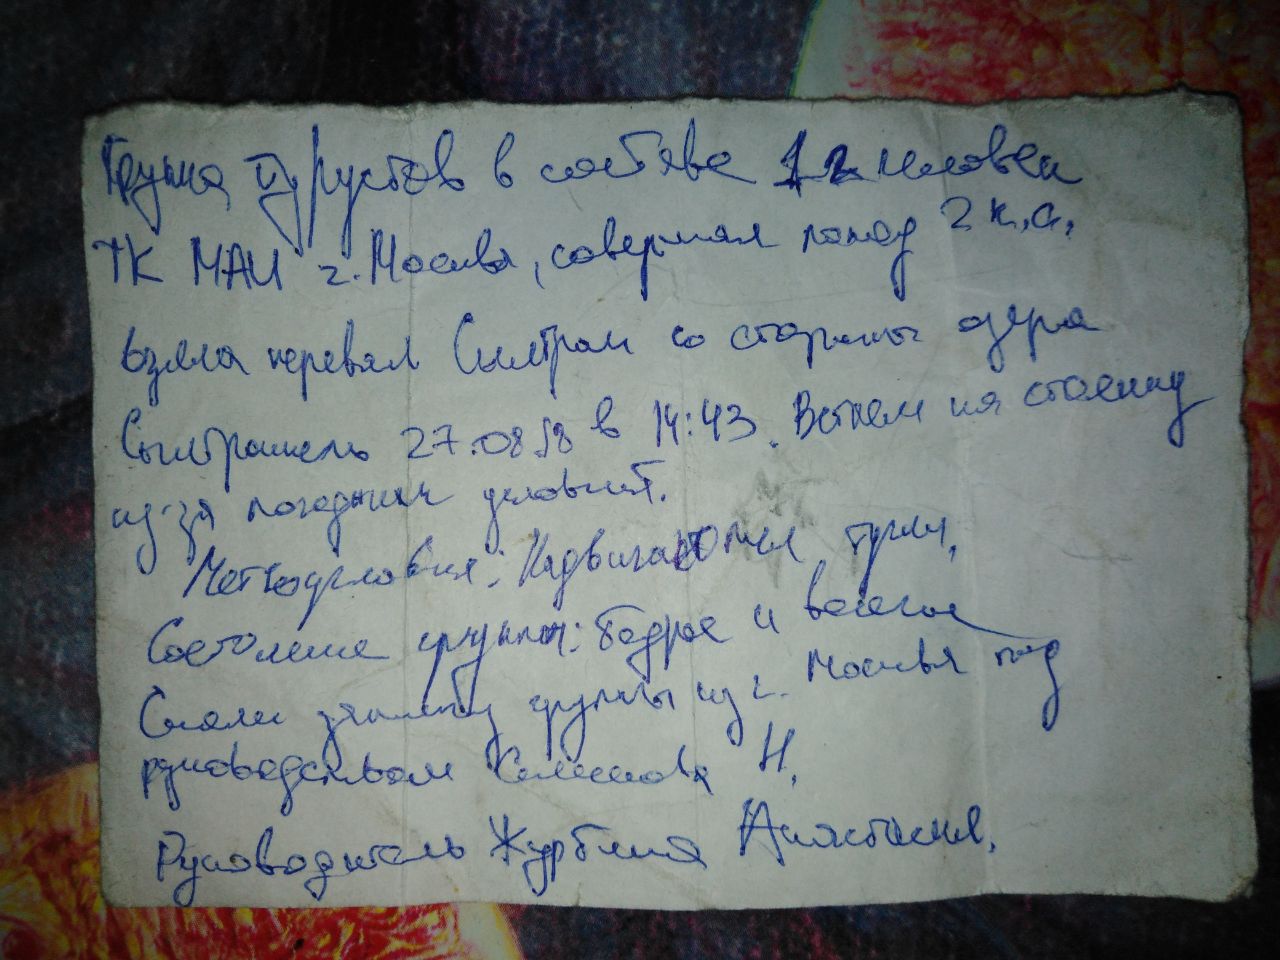 Группа туристов в составе 12 человек
ТК МАИ г. Москва, совершая поход 2 к.с.
взяла перевал Сылтран со стороны озера
Сылтранкель 27.08.18 в 14:43. Встаем на стоянку
из-за погодных условий.
Метеоусловия: Надвигаются тучи.
Состояние группы: бодрое и веселое
Сняли записку группы из г. Москва под
руководством Н.
Руководитель Журбина Анастасия.